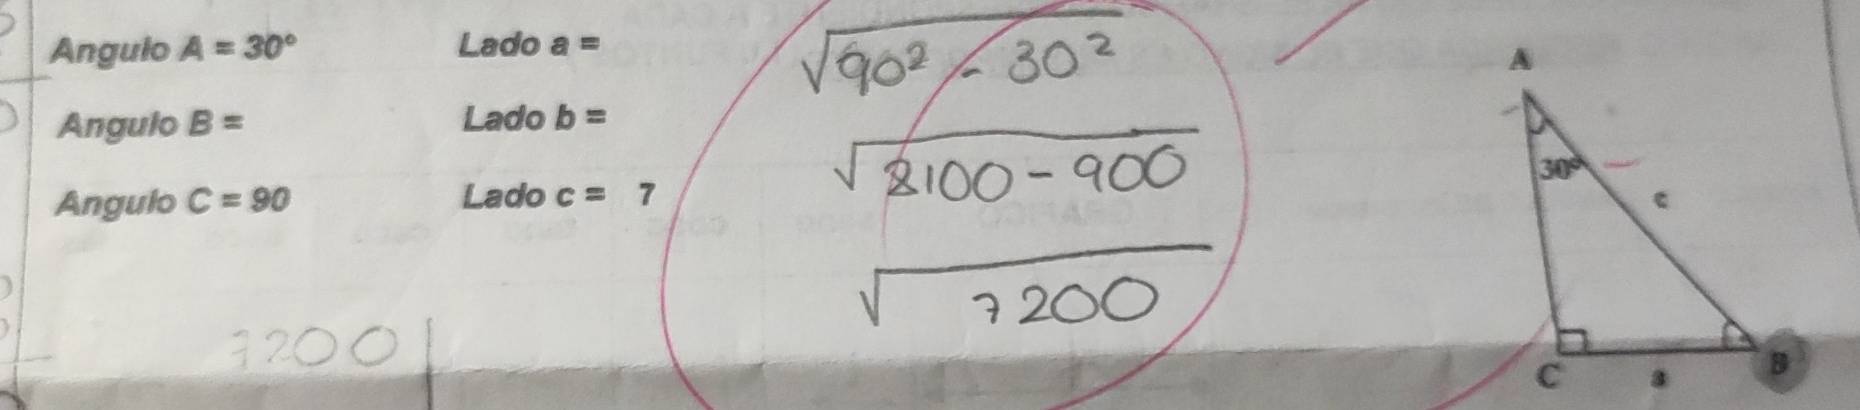 Angulo A = 30° Lado a =
Angulo B = Lado b =
Angulo C = 90 Lado c = 7
√90² - 30²
√8100 - 900
√7200
7200
A
30°
c
C a B